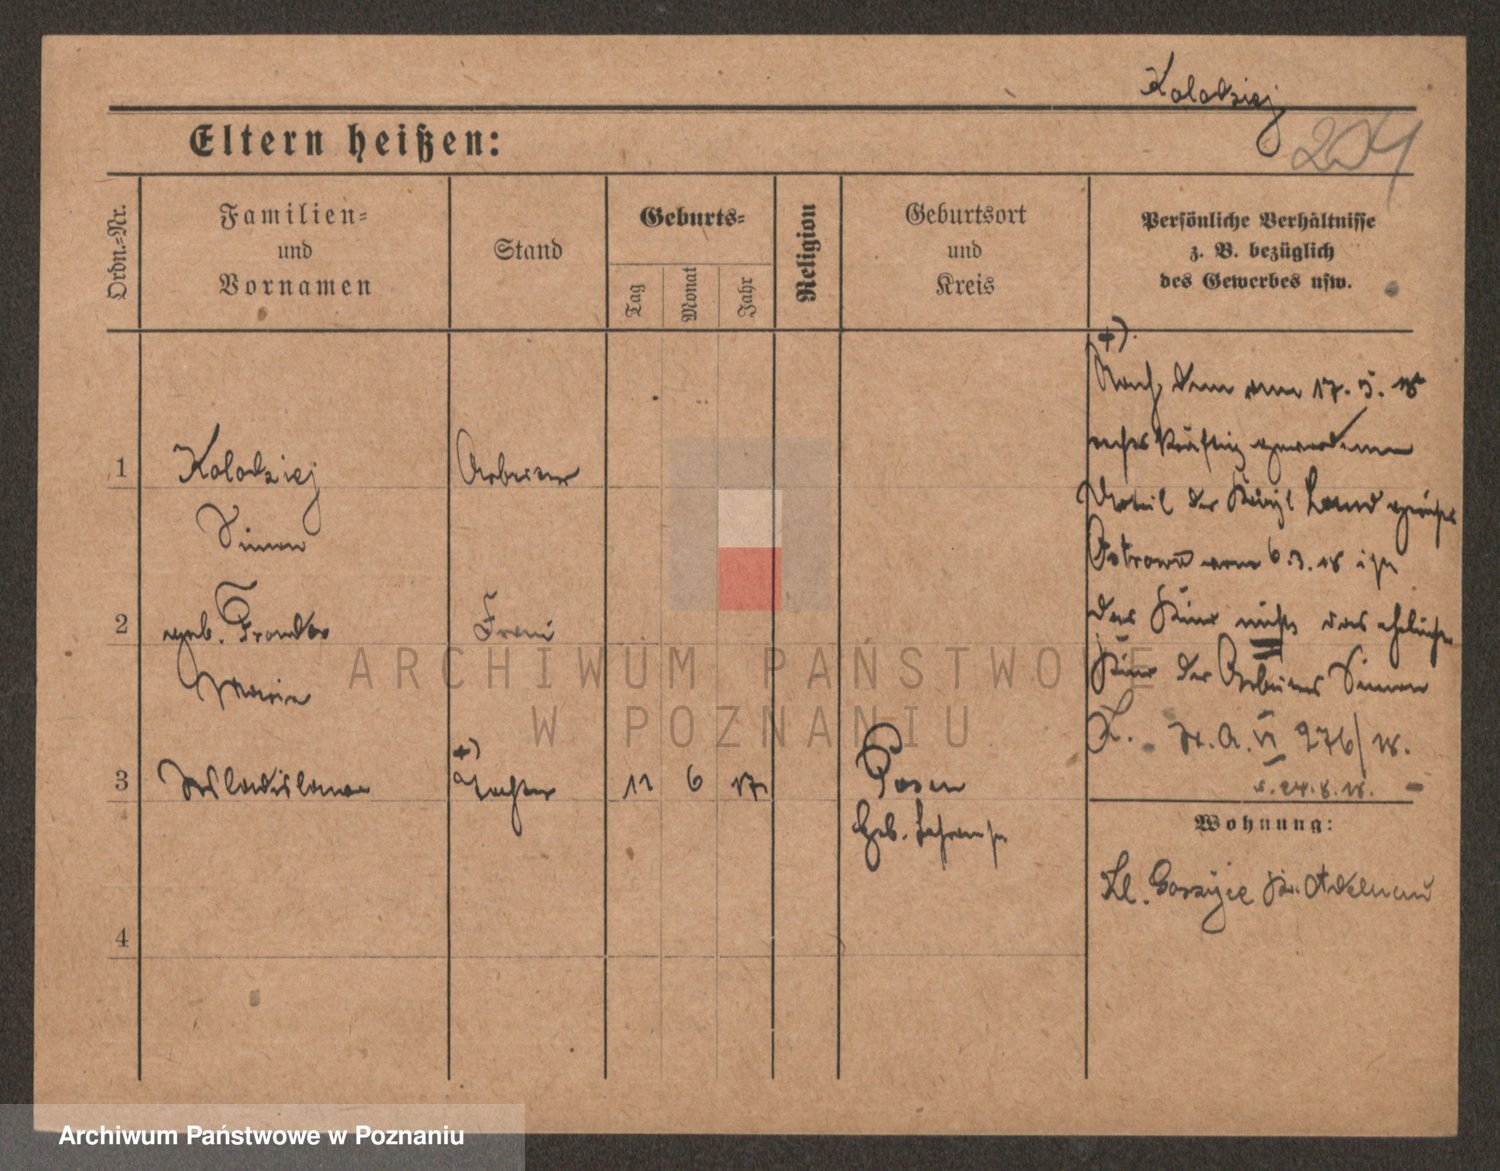 Kolodziej
204
Eltern heißen:
Ordn.-Nr.
Familien-
und
Vornamen
Stand
Geburts-
Tag
Monat
Jahr
Religion
Geburtsort
und
Kreis
Persönliche Verhältnisse
z. B. bezüglich
des Gewerbes usw.
+).
Nach dem am 17. 5. 18
rechtskräftig gewordenen
Urteil der Königl Landgerichts
Ostrowo vom 6.3.18 ist
das Kind nicht das eheliche
Kind des Arbeiters Simon
K. St. A. VI 276/18.
v. 24.8.18.
1
Kolodziej
Arbeiter
Simon
2
geb.
Frau
Maria
3
Wladislawa
+)
Tochter
11 6 17
Posen
Heb. Lehranst
4
Wohnung:
Kl. Gorzyce Kr. Adelnau
ARCHIWUM PAŃSTWOWE
W POZNANIU
Archiwum Państwowe w Poznaniu